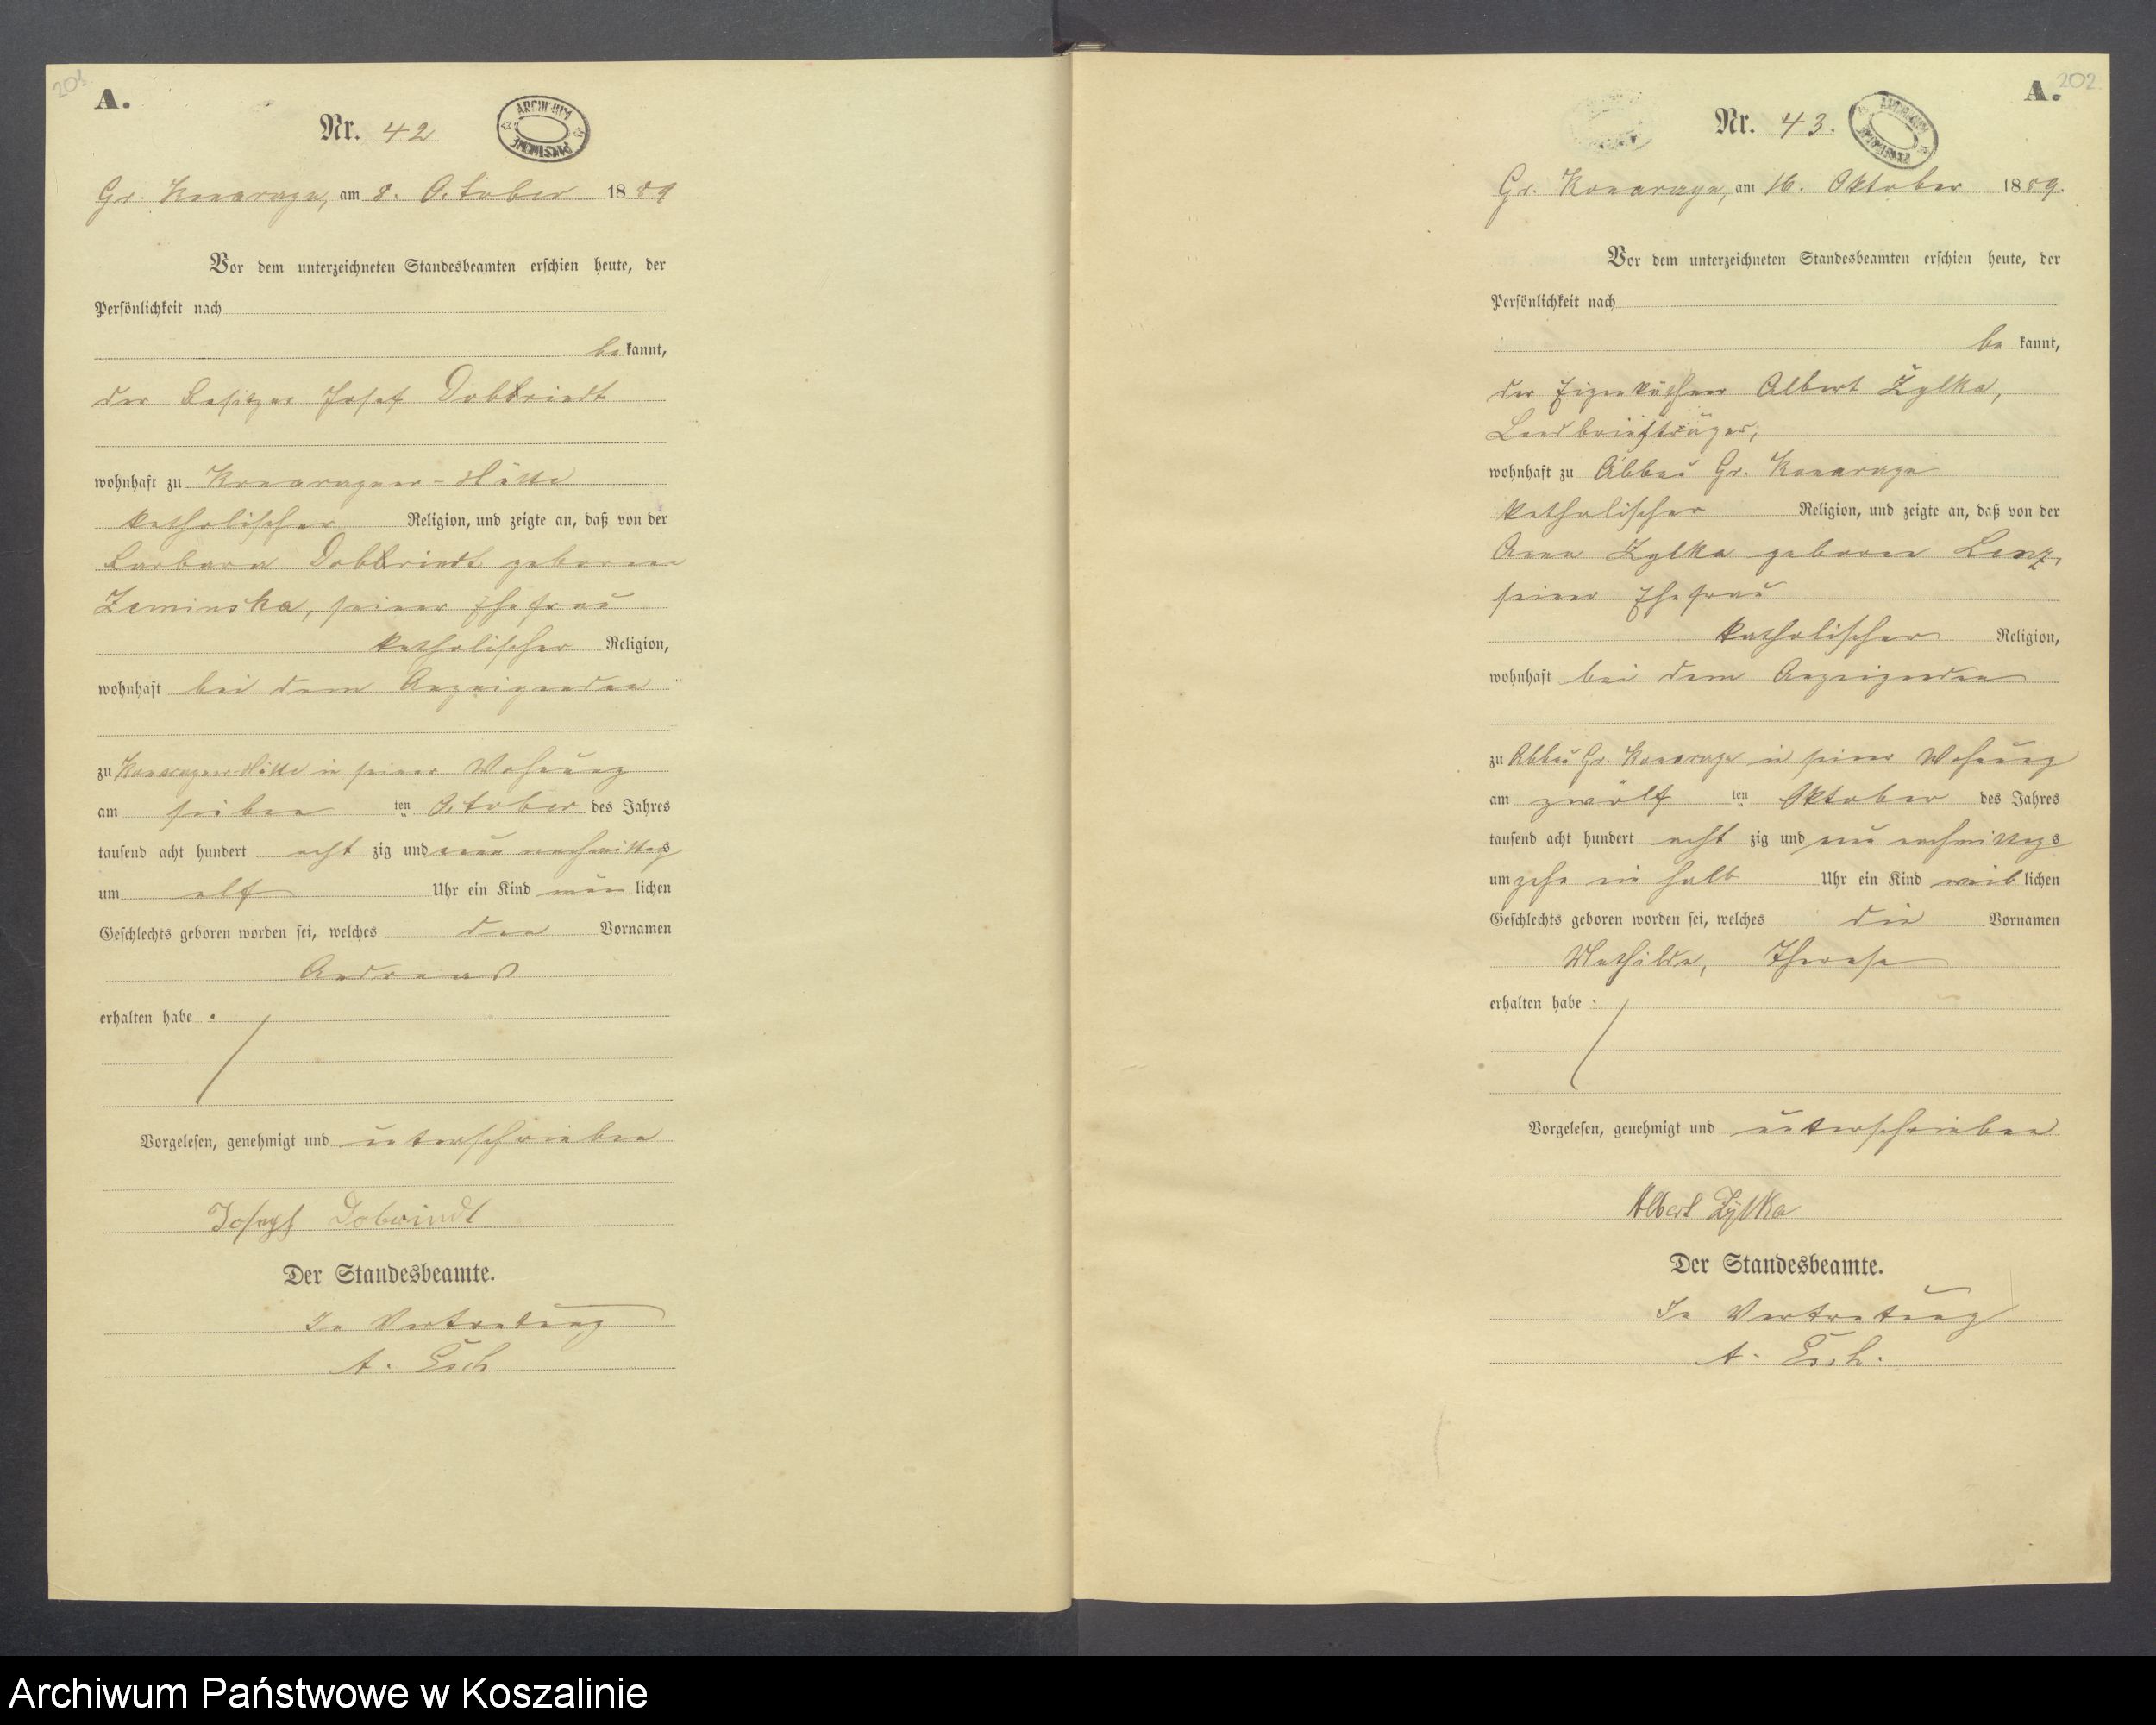 201
A.
Nr. 42
ARCHIWUM PAŃSTWOWE
Gr. Konarczyn, am 8. October 1889
Vor dem unterzeichneten Standesbeamten erschien heute, der
Persönlichkeit nach
be kannt,
der Besitzer Josef Dobbrindt
wohnhaft zu Konarczyner-Hütte
katholischer Religion, und zeigte an, daß von der
Barbara Dobbrindt geborenen
Zeminska, seiner Ehefrau
katholischer Religion,
wohnhaft bei dem Anzeigenden
zu Konarczyner-Hütte in seiner Wohnung
am sieben ten October des Jahres
tausend acht hundert acht zig und neun nachmittags
um elf Uhr ein Kind män lichen
Geschlechts geboren worden sei, welches den Vornamen
Andreas
erhalten habe .
Vorgelesen, genehmigt und unterschrieben
Joseph Dobrindt
Der Standesbeamte.
In Vertretung
A. Esch
202
A.
Nr. 43.
ARCHIWUM PAŃSTWOWE
Gr. Konarczyn, am 16. Oktober 1889.
Vor dem unterzeichneten Standesbeamten erschien heute, der
Persönlichkeit nach
be kannt,
der Eigenkäthner Albert Żylka,
Landbriefträger,
wohnhaft zu Abbau Gr. Konarczyn
katholischer Religion, und zeigte an, daß von der
Anna Zylka geborene Lenz,
seiner Ehefrau
katholischer Religion,
wohnhaft bei dem Anzeigenden
zu Abbau Gr. Konarczyn in seiner Wohnung
am zwölf ten Oktober des Jahres
tausend acht hundert acht zig und neun nachmittags
um zehn ein halb Uhr ein Kind weib lichen
Geschlechts geboren worden sei, welches die Vornamen
Mathilde, Therese
erhalten habe .
Vorgelesen, genehmigt und unterschrieben
Albert Zylka
Der Standesbeamte.
In Vertretung
A. Esch.
Archiwum Państwowe w Koszalinie